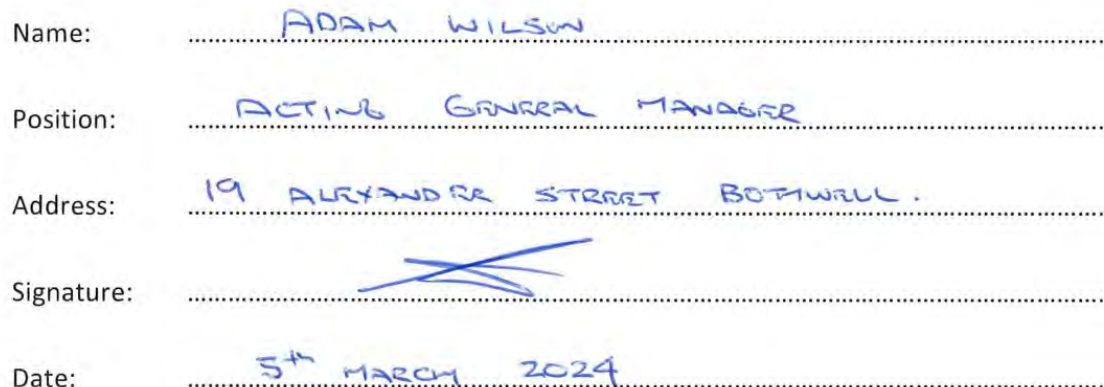 Name: ADAM WILSON
Position: ACTING GENERAL MANAGER
Address: 19 ALEXANDER STREET BOTHWELL.
Signature:
Date: 5th MARCH 2024